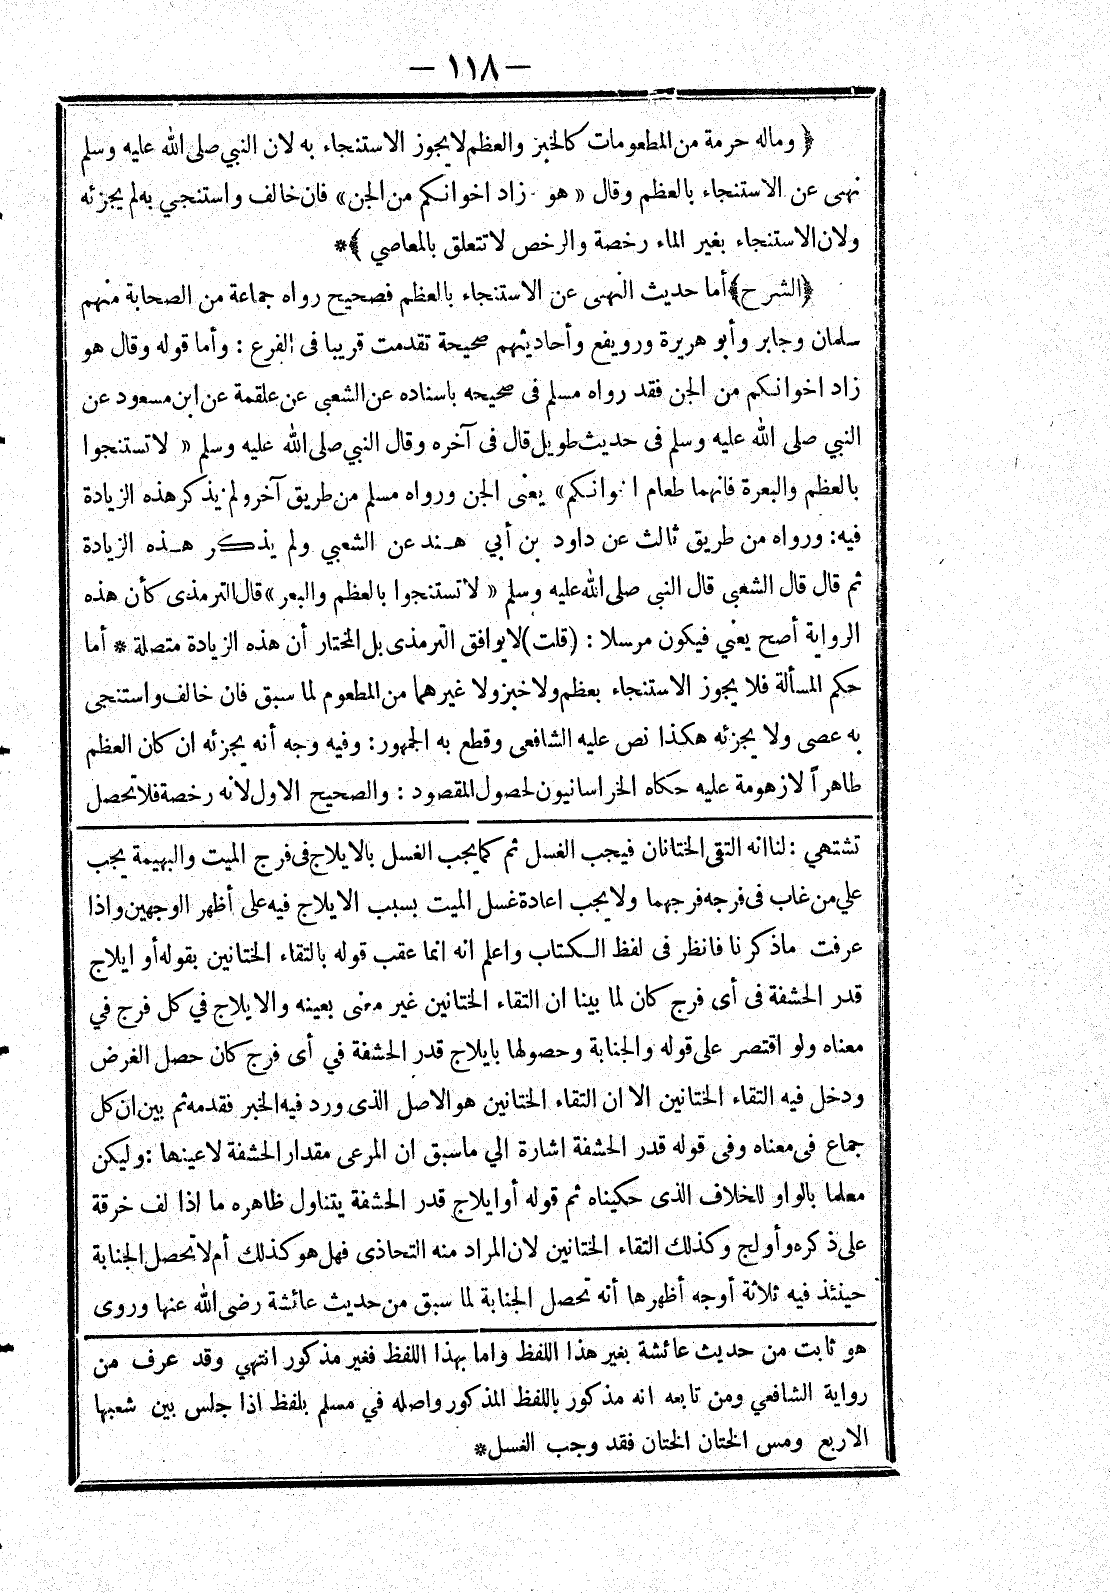 — ١١٨ —
﴿ وماله حرمة من المطعومات كالخبز والعظم لايجوز الاستنجاء به لان النبي صلى الله عليه وسلم
نهى عن الاستنجاء بالعظم وقال « هو زاد اخوانكم من الجن» فان خالف واستنجي به لم يجزئه
ولان الاستنجاء بغير الماء رخصة والرخص لاتتعلق بالمعاصي ﴾*
﴿الشرح﴾ أما حديث النهى عن الاستنجاء بالعظم فصحيح رواه جماعة من الصحابة منهم
سلمان وجابر وأبو هريرة ورويفع وأحاديثهم صحيحة تقدمت قريبا فى الفرع : وأما قوله وقال هو
زاد اخوانكم من الجن فقد رواه مسلم فى صحيحه باسناده عن الشعبى عن علقمة عن ابن مسعود عن
النبي صلى الله عليه وسلم فى حديث طويل قال فى آخره وقال النبي صلى الله عليه وسلم « لاتستنجوا
بالعظم والبعرة فانهما طعام اخوانكم» يعنى الجن ورواه مسلم من طريق آخر ولم يذكر هذه الزيادة
فيه: ورواه من طريق ثالث عن داود بن أبي هند عن الشعبي ولم يذكر هذه الزيادة
ثم قال قال الشعبى قال النبى صلى الله عليه وسلم « لاتستنجوا بالعظم والبعر »قال الترمذى كأن هذه
الرواية أصح يعني فيكون مرسلا : (قلت) لايوافق الترمذى بل المختار أن هذه الزيادة متصلة * أما
حكم المسألة فلا يجوز الاستنجاء بعظم ولاخبز ولا غيرهما من المطعوم لما سبق فان خالف واستنجى
به عصى ولا يجزئه هكذا نص عليه الشافعى وقطع به الجمهور: وفيه وجه أنه يجزئه ان كان العظم
طاهراً لازهومة عليه حكاه الخراسانيون لحصول المقصود : والصحيح الاول لانه رخصة فلاتحصل
تشتهي :لنا انه التقى الختانان فيجب الغسل ثم كما يجب الغسل بالايلاج فى فرج الميت والبهيمة يجب
علي من غاب فى فرجه فرجهما ولايجب اعادة غسل الميت بسبب الايلاج فيه على أظهر الوجهين واذا
عرفت ماذكرنا فانظر فى لفظ الكتاب واعلم انه انما عقب قوله بالتقاء الختانين بقوله أو ايلاج
قدر الحشفة فى أى فرج كان لما بينا ان التقاء الختانين غير معنى بعينه والايلاج في كل فرج في
معناه ولو اقتصر على قوله والجنابة وحصولها بايلاج قدر الحشفة في أى فرج كان حصل الغرض
ودخل فيه التقاء الختانين الا ان التقاء الختانين هو الاصل الذى ورد فيه الخبر فقدمه ثم بين ان كل
جماع فى معناه وفى قوله قدر الحشفة اشارة الي ماسبق ان المرعى مقدار الحشفة لاعينها :وليكن
معلما بالواو للخلاف الذى حكيناه ثم قوله أوايلاج قدر الحشفة يتناول ظاهره ما اذا لف خرقة
على ذكره وأولج وكذلك التقاء الختانين لان المراد منه التحاذى فهل هو كذلك أم لاتحصل الجنابة
حينئذ فيه ثلاثة أوجه أظهرها أنه تحصل الجنابة لما سبق من حديث عائشة رضى الله عنها وروى
هو ثابت من حديث عائشة بغير هذا اللفظ واما بهذا اللفظ فغير مذكور انتهي وقد عرف من
رواية الشافعي ومن تابعه انه مذكور باللفظ المذكور واصله في مسلم بلفظ اذا جلس بين شعبها
الاربع ومس الختان الختان فقد وجب الغسل*